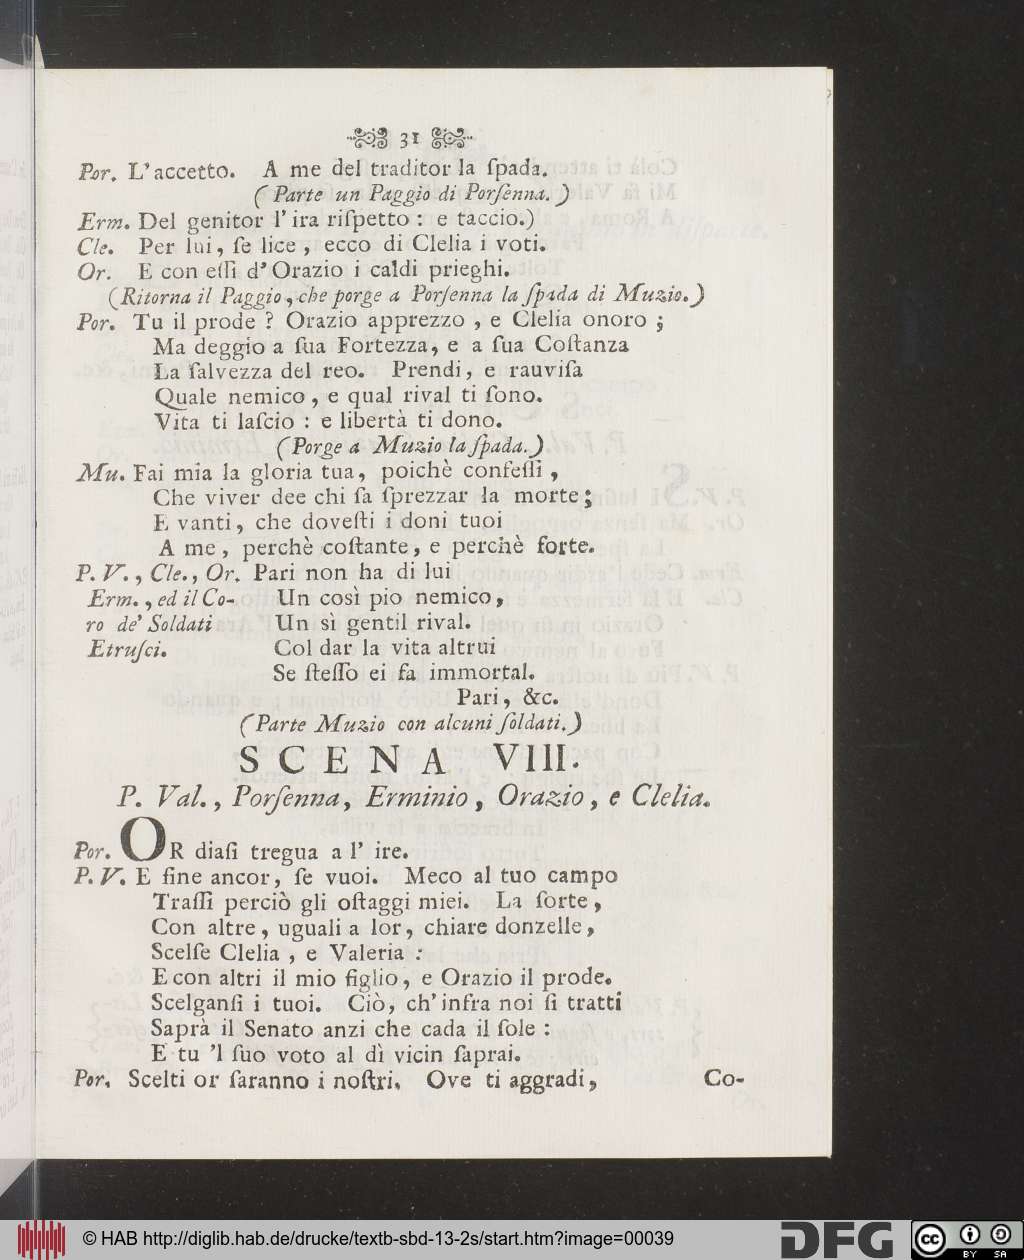 31
Por. L'accetto. A me del traditor la ſpada.
( Parte un Paggio di Porſenna. )
Erm. Del genitor l'ira riſpetto : e taccio.)
Cle. Per lui, ſe lice, ecco di Clelia i voti.
Or. E con eſſi d'Orazio i caldi prieghi.
(Ritorna il Paggio, che porge a Porſenna la ſpada di Muzio.)
Por. Tu il prode ? Orazio apprezzo , e Clelia onoro ;
Ma deggio a ſua Fortezza, e a ſua Coſtanza
La ſalvezza del reo. Prendi, e rauviſa
Quale nemico , e qual rival ti ſono.
Vita ti laſcio : e libertà ti dono.
(Porge a Muzio la ſpada.)
Mu. Fai mia la gloria tua, poichè confeſſi ,
Che viver dee chi ſa ſprezzar la morte;
E vanti, che doveſti i doni tuoi
A me, perchè coſtante, e perchè forte.
P. V., Cle., Or. Pari non ha di lui
Erm., ed il Co- Un così pio nemico,
ro de' Soldati Un sì gentil rival.
Etruſci. Col dar la vita altrui
Se ſteſſo ei fa immortal.
Pari, &c.
(Parte Muzio con alcuni ſoldati.)
SCENA VIII.
P. Val., Porſenna, Erminio, Orazio, e Clelia.
Por. OR diaſi tregua a l' ire.
P. V. E fine ancor, ſe vuoi. Meco al tuo campo
Traſſi perciò gli oſtaggi miei. La ſorte,
Con altre, uguali a lor, chiare donzelle,
Scelſe Clelia, e Valeria :
E con altri il mio figlio, e Orazio il prode.
Scelganſi i tuoi. Ciò, ch'infra noi ſi tratti
Saprà il Senato anzi che cada il ſole :
E tu 'l ſuo voto al dì vicin ſaprai.
Por. Scelti or ſaranno i noſtri. Ove ti aggradi,
Co-
© HAB http://diglib.hab.de/drucke/textb-sbd-13-2s/start.htm?image=00039
DFG
cc BY SA